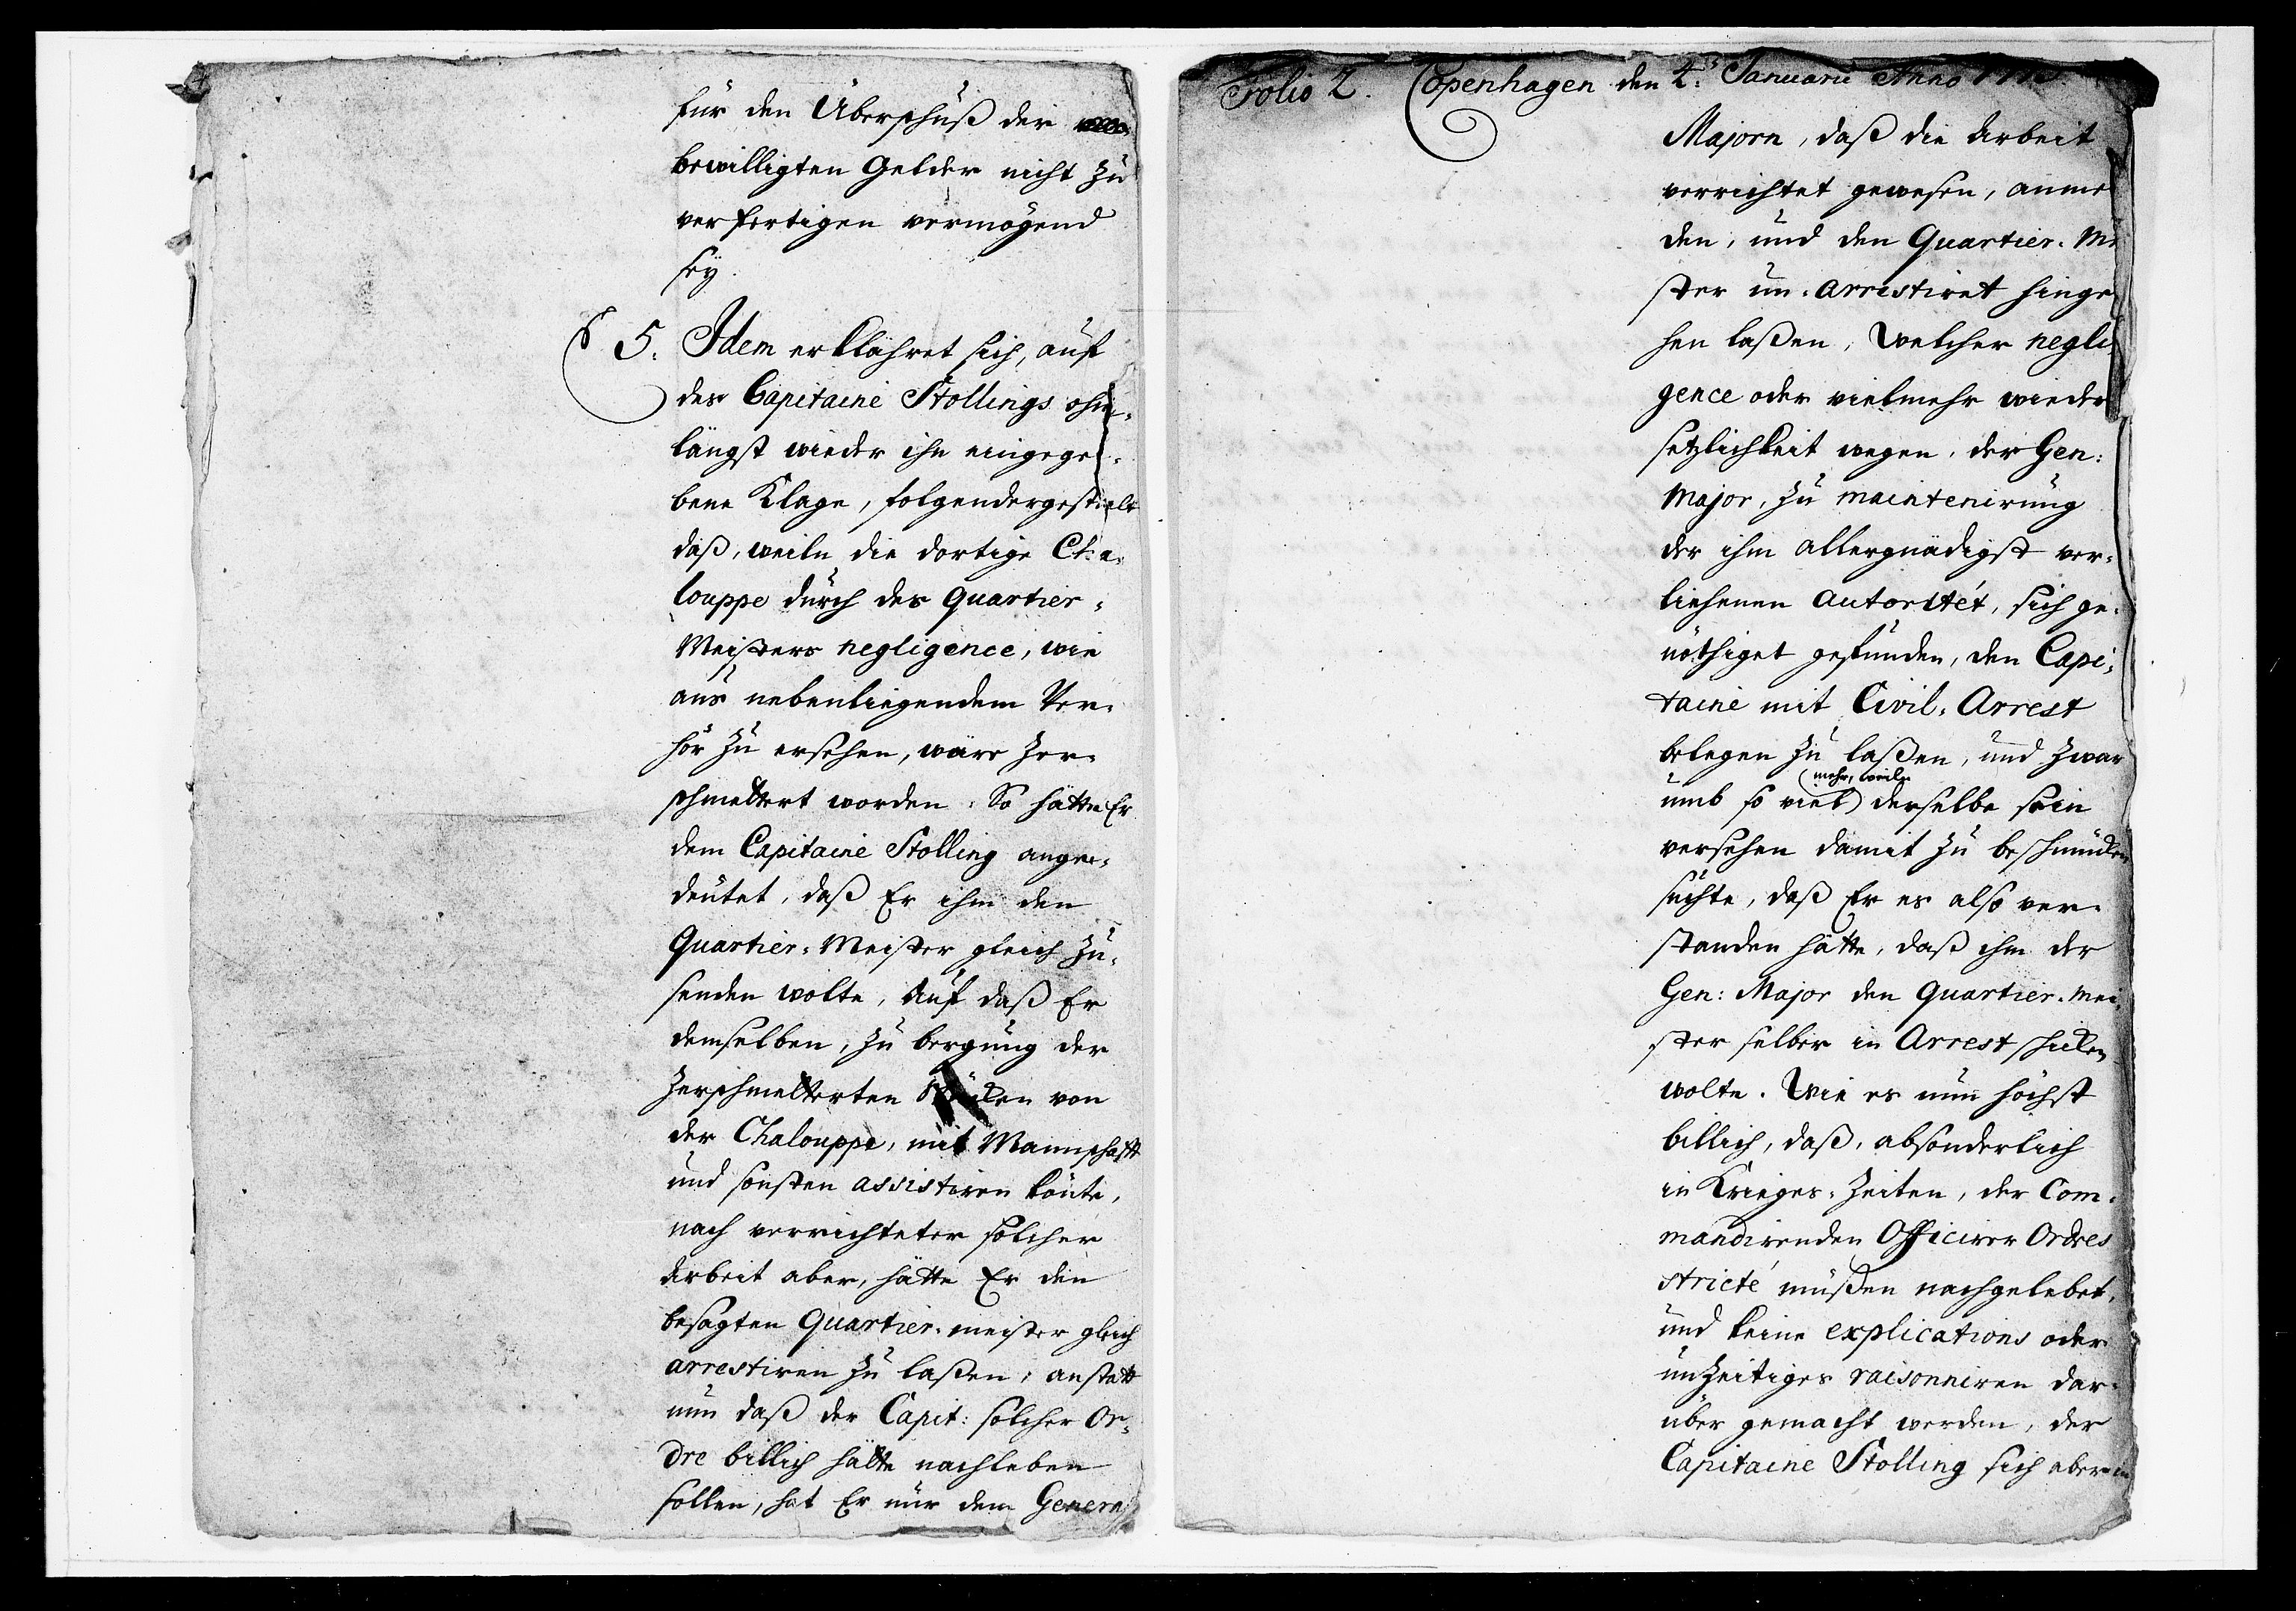 für den Überschuß der
bewilligten Gelder nicht zu
verfertigen vermögend
seÿ.
§ 5. Idem erklähret sich, auf
des Capitaine Stollings ohn-
längst wieder ihn eingege-
bene Klage, folgendergestalt
daß, weiln die dortige Cha-
louppe durch des Quartier-
Meisters negligence, wie
aus nebenliegendem Ver-
hör zu ersehen, wäre zer-
schmettert worden. So hätte Er
dem Capitaine Stolling ange-
deutet, daß Er ihm den
Quartier-Meister gleich zu-
senden wolte, auf daß Er
demselben, zu bergung der
zerschmetterten Stücken von
der Chalouppe, mit Mannschafft
und sonsten assistiren könte,
nach verrichteter solcher
Arbeit aber, hätte Er den
besagten Quartier-meister gleich
arrestiren zu laßen; anstatt
nun daß der Capit: solcher Or-
dre billich hätte nachleben
sollen, hat Er nur dem General
Folio 2. Copenhagen den 4.ᵗ Januarii Anno
Majorn, daß die Arbeit
verrichtet gewesen, anme
den, und den Quartier-Me
ster un-arrestiret hinge
hen laßen, Welcher negli
gence oder vielmehr wieder
setzlichkeit wegen, der Gen:
Major, zu maintenirung
der ihm allergnädigst ver-
liehenen Autoritét, sich ge-
nöthiget gefunden, den Capi-
taine mit Civil-Arrest
belegen zu laßen, und zwar
umb so viel (mehr, weiln) derselbe sein
versehen damit zu beschmücken
suchte, daß Er es also ver-
standen hätte, daß ihm der
Gen: Major den Quartier-Mei
ster selber in Arrest schicken
wolte. Wie es nun höchst
billich, daß, absonderlich
in Krieges-Zeiten, der Com-
mandirenden Officirer Ordres
stricté müßen nachgelebet,
und keine explications oder
unzeitiges raisonniren dar-
über gemacht werden, der
Capitaine Stolling sich aber in